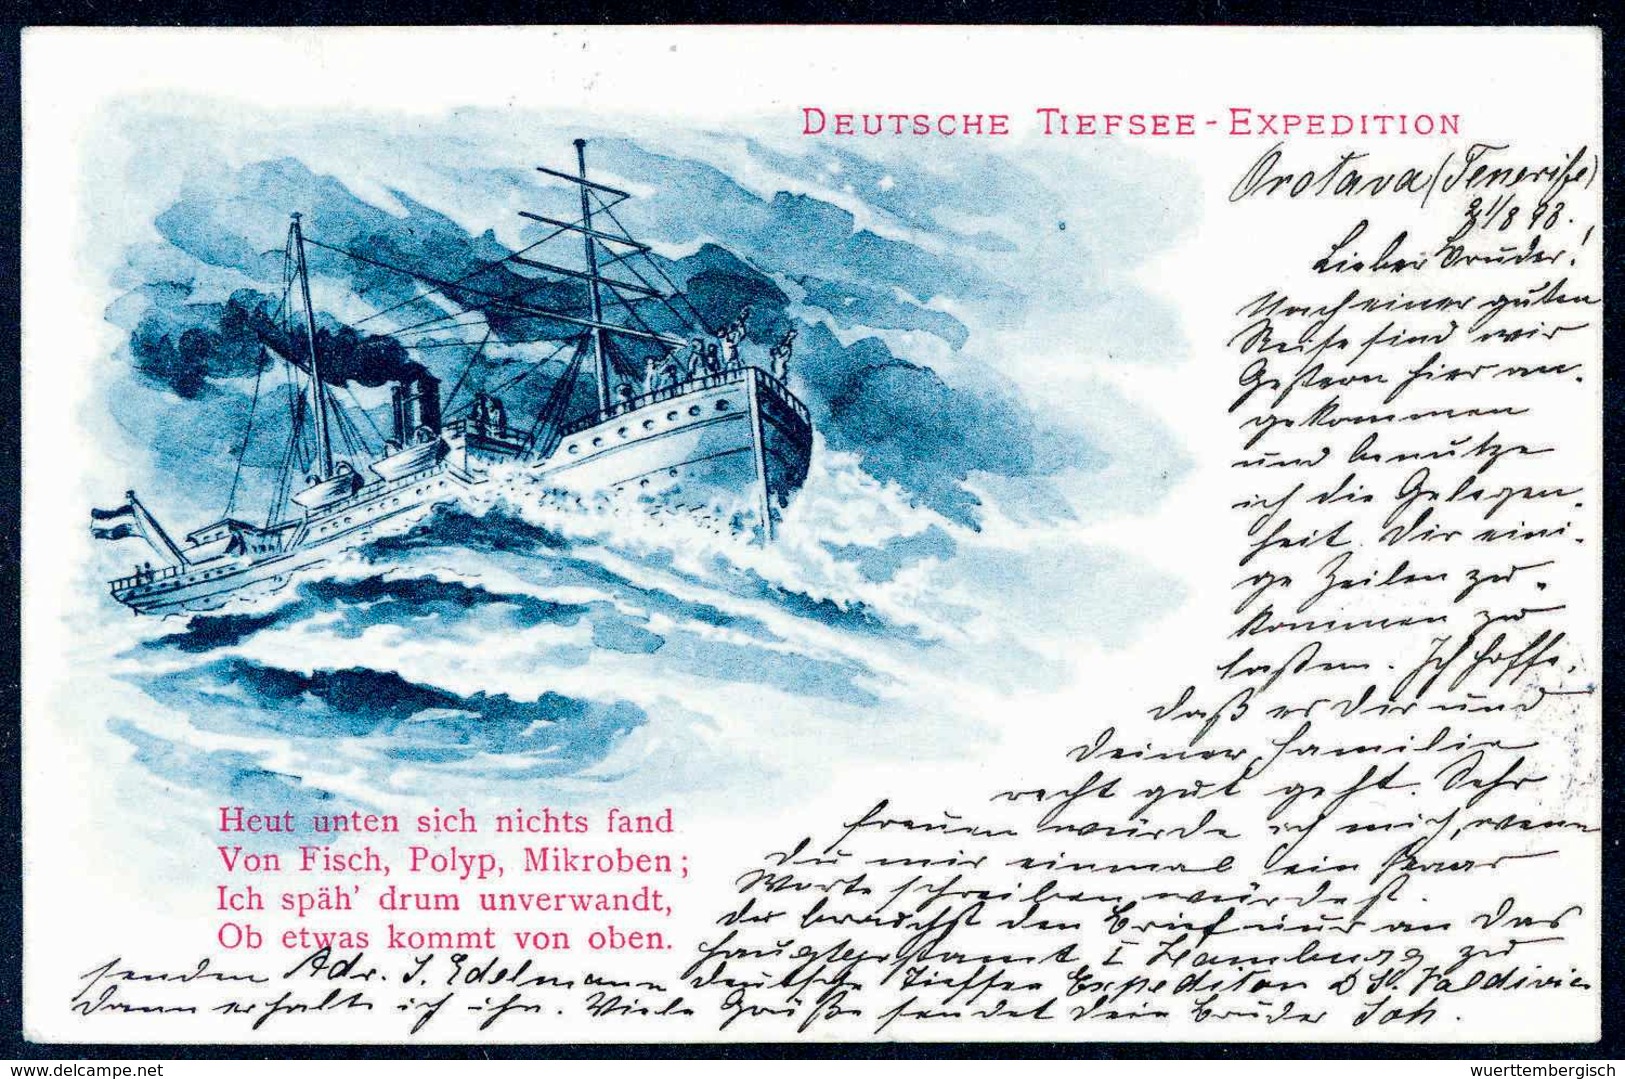 DEUTSCHE TIEFSEE-EXPEDITION
Orotava (Tenerife)
21/8 98.
Lieber Bruder!
Nach einer guten
Reise sind wir
Gestern hier an-
gekommen
und benutze
ich die Gelegen-
heit Dir eini-
ge Zeilen zu-
kommen zu
laßen. Ich hoffe,
daß es Dir und
Deiner Familie
recht gut geht. Sehr
freuen würde ich mich, wenn
Du mir einmal ein Paar
Worte schreiben würdest.
Du brauchst den Brief nur an das
Hauptpostamt I Hamburg zu
senden Adr. J. Edelmann Deutsche Tieffee Expedition D St. Valdivia
Dann erhalte ich ihn. Viele Grüße sendet Dein Bruder Joh.
Heut unten sich nichts fand
Von Fisch, Polyp, Mikroben;
Ich späh' drum unverwandt,
Ob etwas kommt von oben.
delcampe.net
wuerttembergisch